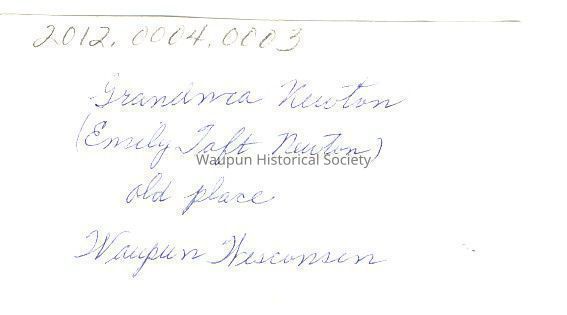 2012.0004.0003
Grandma Newton
(Emily Taft Newton)
Waupun Historical Society
old place
Waupun Wisconsin